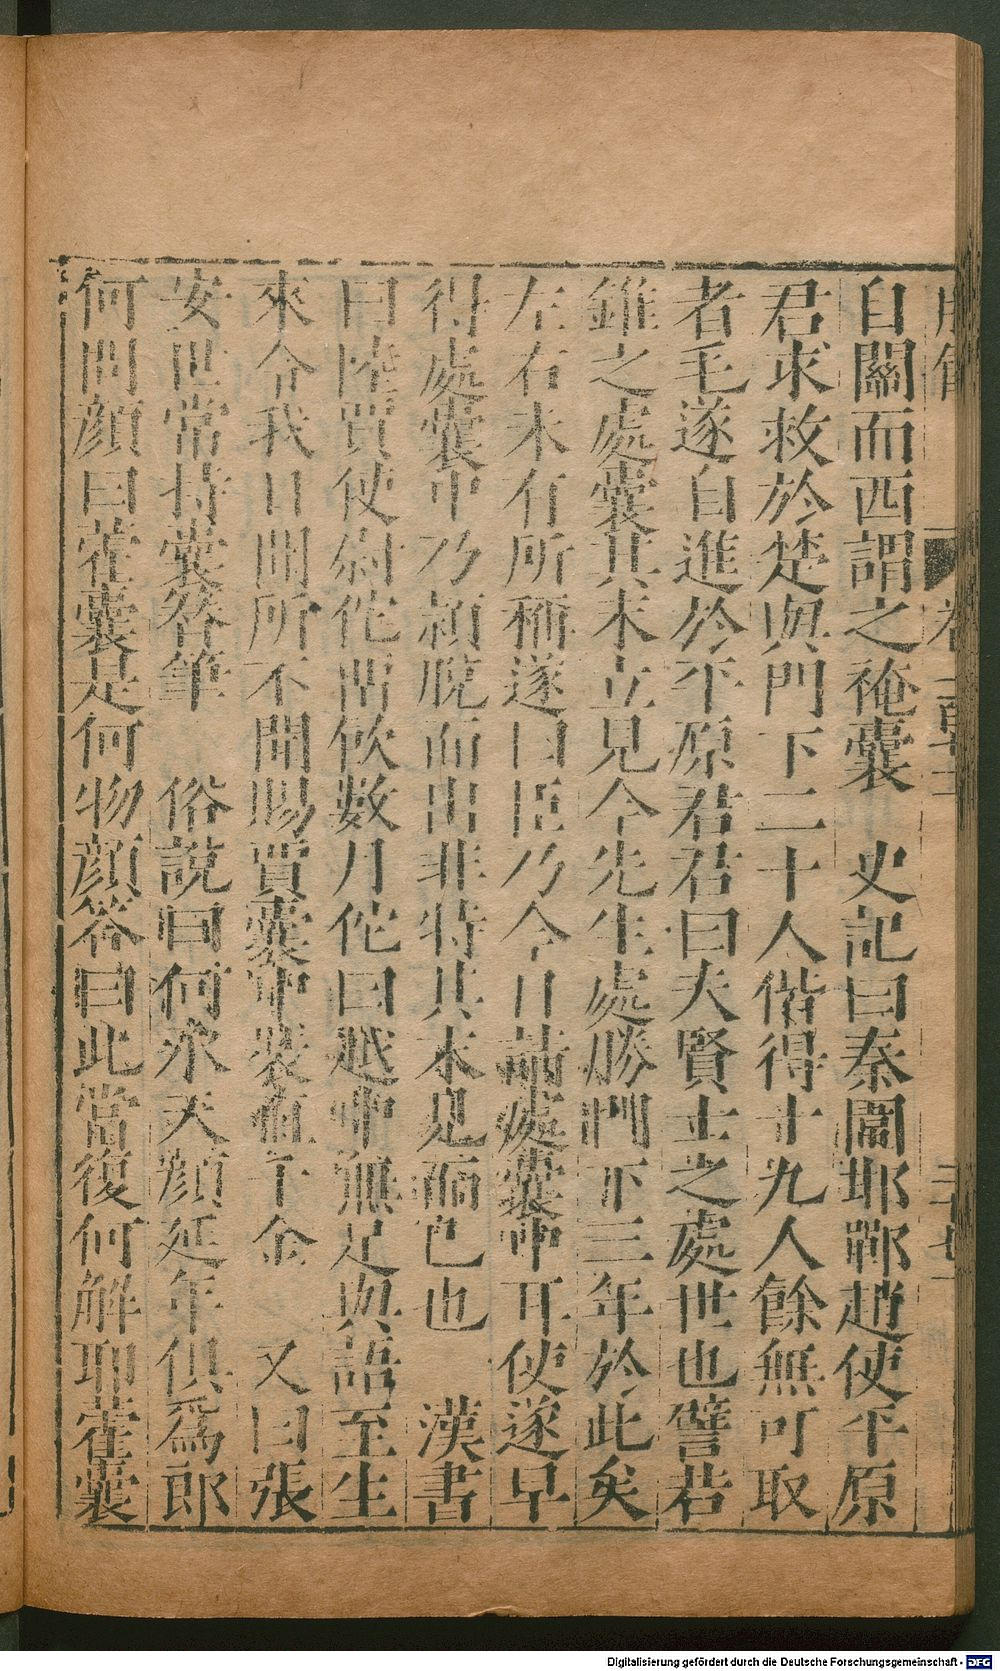 自關而西謂之裺囊　史記曰秦圍邯鄲趙使平原
君求救於楚與門下二十人偕得十九人餘無可取
者毛遂自進於平原君君曰夫賢士之處世也譬若
錐之處囊其末立見今先生處勝門下三年於此矣
左右未有所稱遂曰臣乃今日請處囊中耳使遂早
得處囊中乃穎脫而出非特其末見而已也　漢書
曰陸賈使尉佗留飲數月佗曰越中無足與語至生
來令我日聞所不聞賜賈囊中裝直千金　又曰張
安世常持囊簪筆　俗說曰何承天顏延年俱爲郎
何問顏曰藿囊是何物顏答曰此當復何解耶藿囊
Digitalisierung gefördert durch die Deutsche Forschungsgemeinschaft - DFG